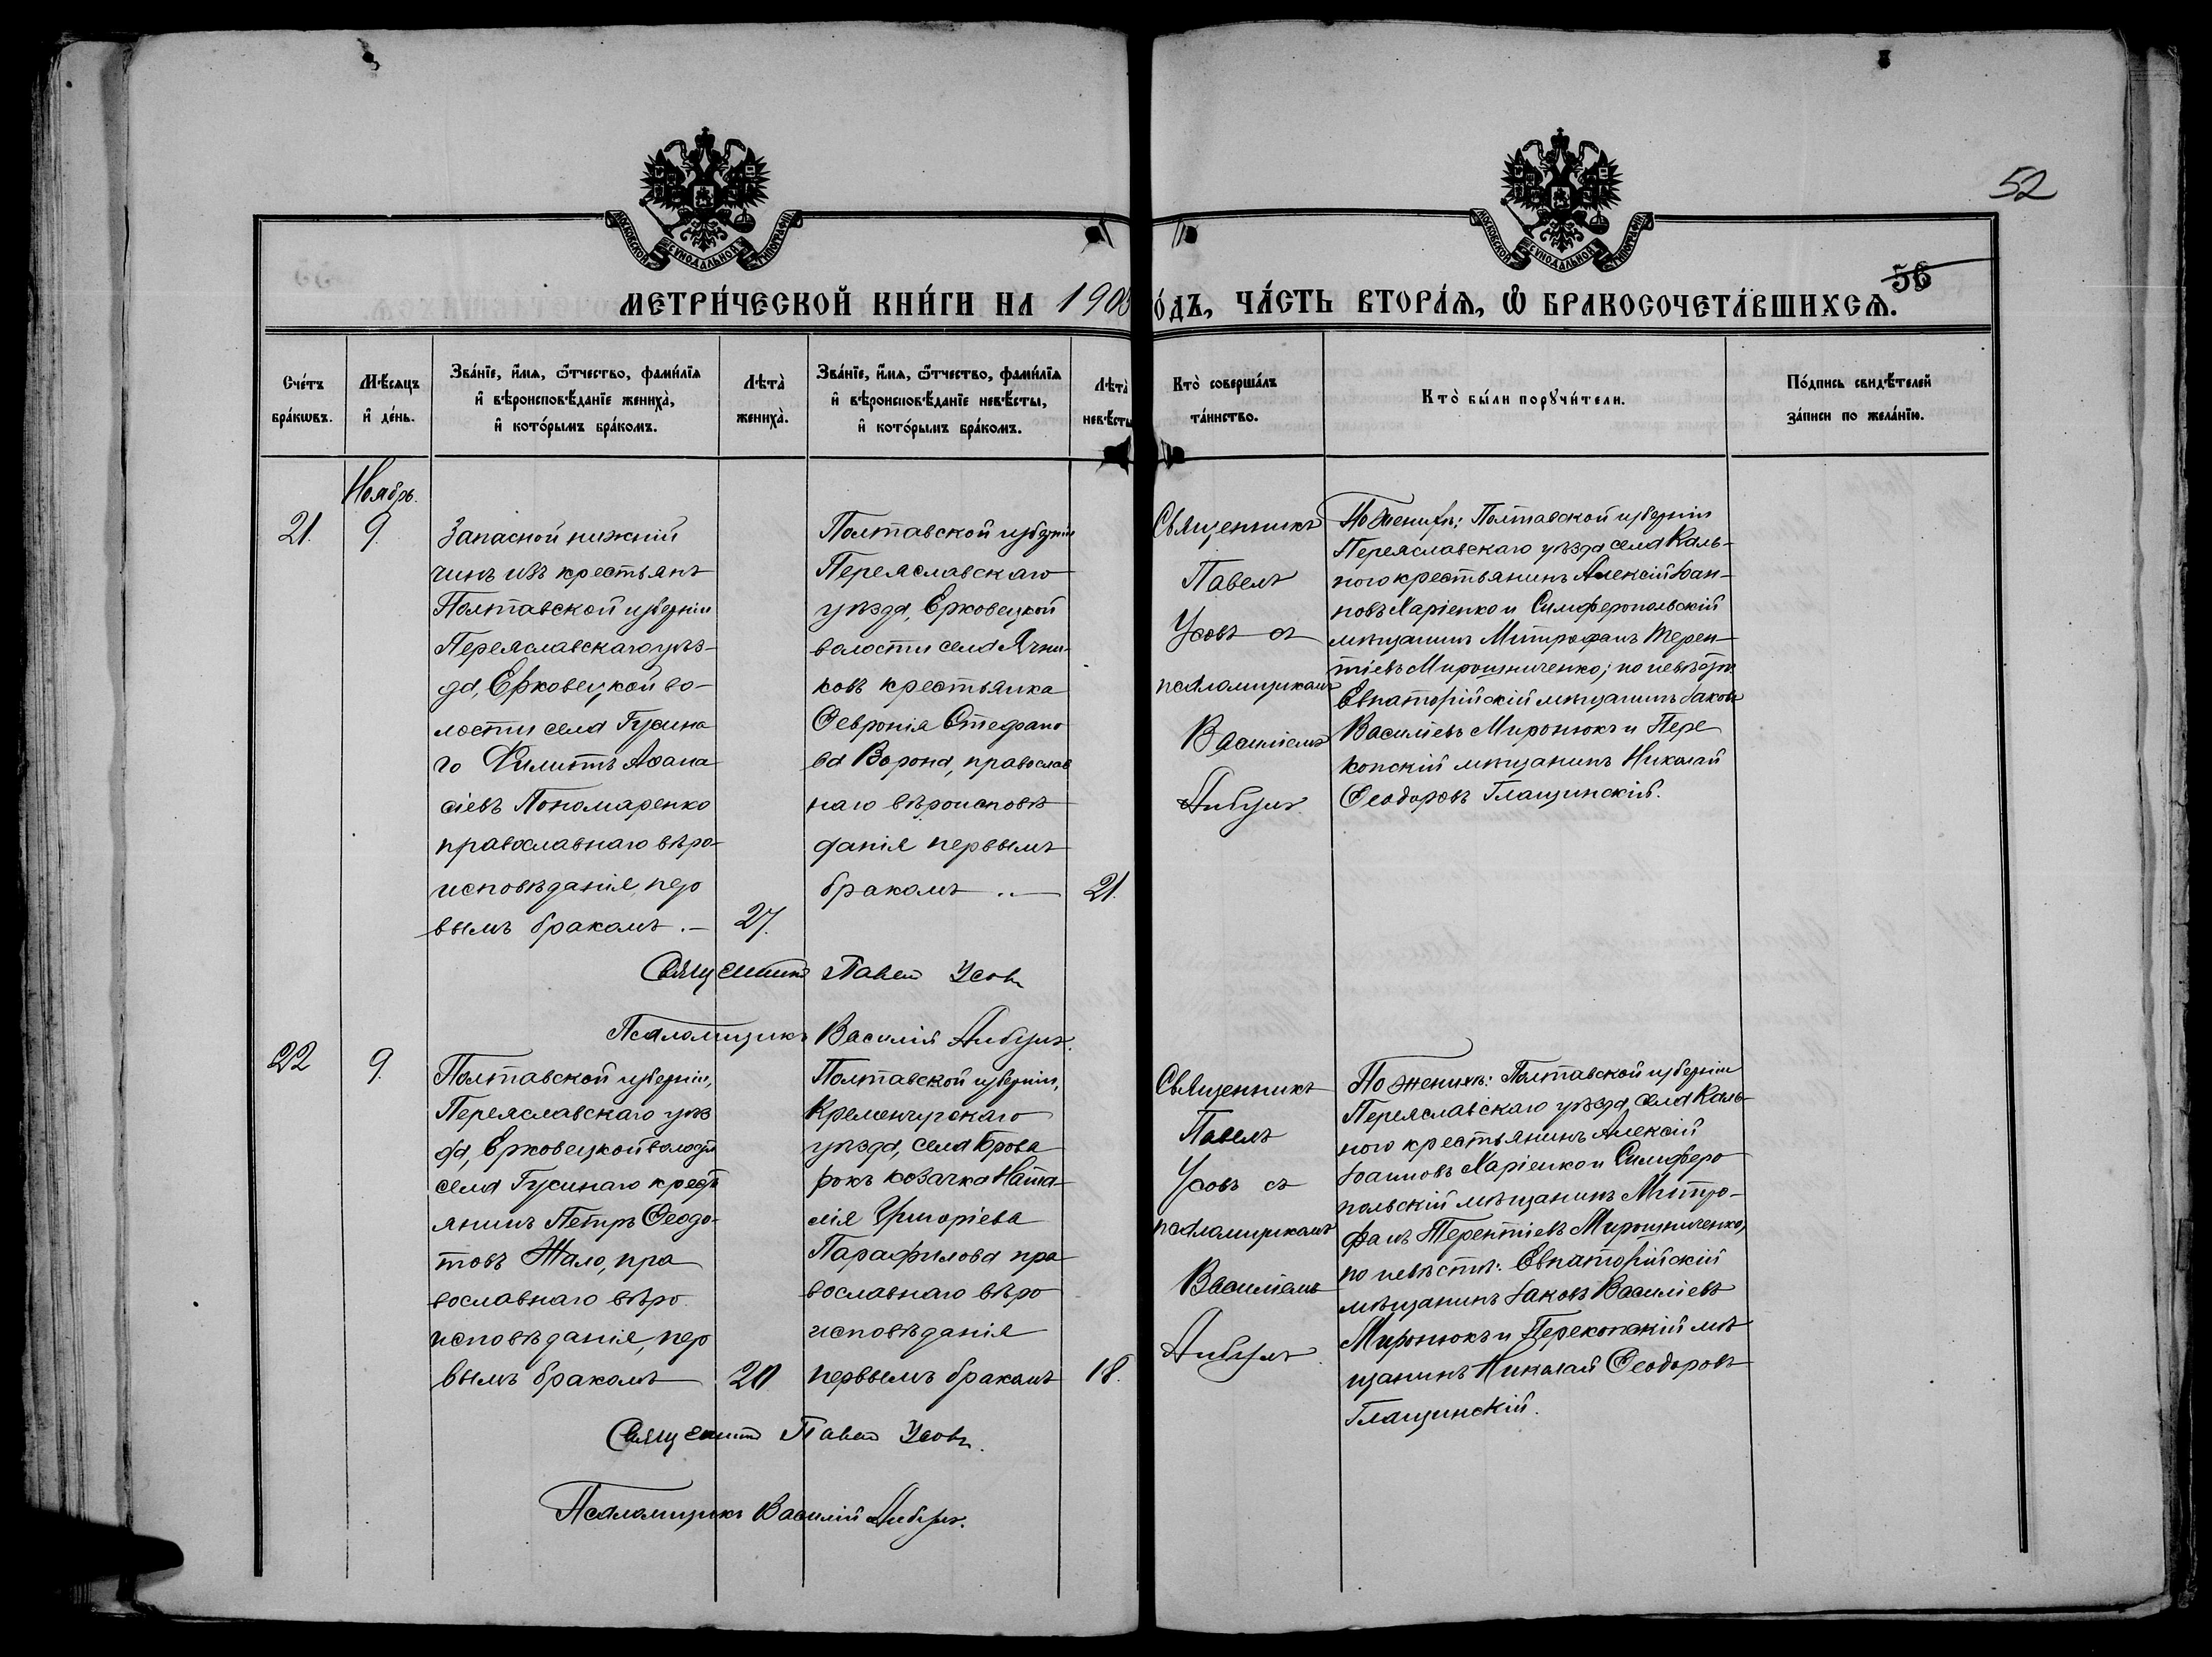 52
56
МОСКОВСКОЙ СѴНОДАЛЬНОЙ ТИПОГРАФІИ
МОСКОВСКОЙ СѴНОДАЛЬНОЙ ТИПОГРАФІИ
МЕТРИ́ЧЕСКОЙ КНИ́ГИ НА 190
О́ДЪ, ЧА́СТЬ ВТОРА́Я, Ѽ БРАКОСОЧЕТА́ВШИХСЯ.
Сче́тъ
бра́кѡвъ.
Мѣ́сяцъ
и҆ де́нь.
Зва́нїе, и҆́мя, ѻ҆́тчество, фами́лїя
и҆ вѣроисповѣ́данїе жениха̀,
и҆ кото́рымъ бра́комъ.
Лѣта̀
жениха̀.
Зва́нїе, и҆́мя, ѻ҆́тчество, фами́лїя
и҆ вѣроисповѣ́данїе невѣ́сты,
и҆ кото́рымъ бра́комъ.
Лѣта̀
невѣ́сты
Кто̀ соверша́лъ
та́инство.
Кто̀ бы́ли порꙋчи́тели.
По́дпись свидѣ́телей
за́писи по жела́нїю.
Ноябрь.
21. 9.
Запасной нижній
чинъ изъ крестьянъ
Полтавской губерніи
Переяславскаго уѣз-
да, Ерковецкой во-
лости села Гусина
го Филиппъ Аѳана
сіевъ Пономаренко
православнаго вѣро-
исповѣданія, пер
вымъ бракомъ.—
27.
Полтавской губерніи
Переяславскаго
уѣзда, Ерковецкой
волости села Ячни-
ковъ крестьянка
Ѳевронія Стефано
ва Ворона, православ
наго вѣроисповѣ
данія первымъ
бракомъ.—
21.
Священникъ
Павелъ
Усовъ съ
псаломщикомъ
Василіемъ
По женихѣ: Полтавской губерніи
Переяславскаго уѣзда села Каль-
ного крестьянинъ Алексій Іоан-
новъ Харіенко и Симферопольскій
мѣщанинъ Митрофанъ Терен-
тіевъ Мирошниченко; по невѣстѣ
Евпаторійскій мѣщанинъ Іаковъ
Василіевъ Миронюкъ и Пере
копскій мѣщанинъ Николай
Ѳеодоровъ Глащинскій.
Священникъ Павелъ Усовъ
Псаломщикъ Василій
22 9.
Полтавской губерніи,
Переяславскаго уѣз
да, Ерковецкой волости
села Гусинаго кресть
янинъ Петръ Ѳеодо-
товъ Жало, пра
вославнаго вѣро
исповѣданія, пер
вымъ бракомъ
20
Полтавской губерніи,
Кременчугскаго
уѣзда, села Брова
рокъ козачка Ната-
лія Григоріева
Парафилова пра
вославнаго вѣро
исповѣданія
первымъ бракомъ
18.
Священникъ
Павелъ
Усовъ съ
псаломщикомъ
Василіемъ
По женихѣ: Полтавской губерніи
Переяславскаго уѣзда села Каль-
ного крестьянинъ Алексій
Іоанновъ Харіенко и Симферо
польскій мѣщанинъ Митро-
фанъ Терентіевъ Мирошниченко,
по невѣстѣ: Евпаторійскій
мѣщанинъ Іаковъ Василіевъ
Миронюкъ и Перекопскій мѣ
щанинъ Николай Ѳеодоровъ
Глащинскій.
Священникъ Павелъ Усовъ.
Псаломщикъ Василій